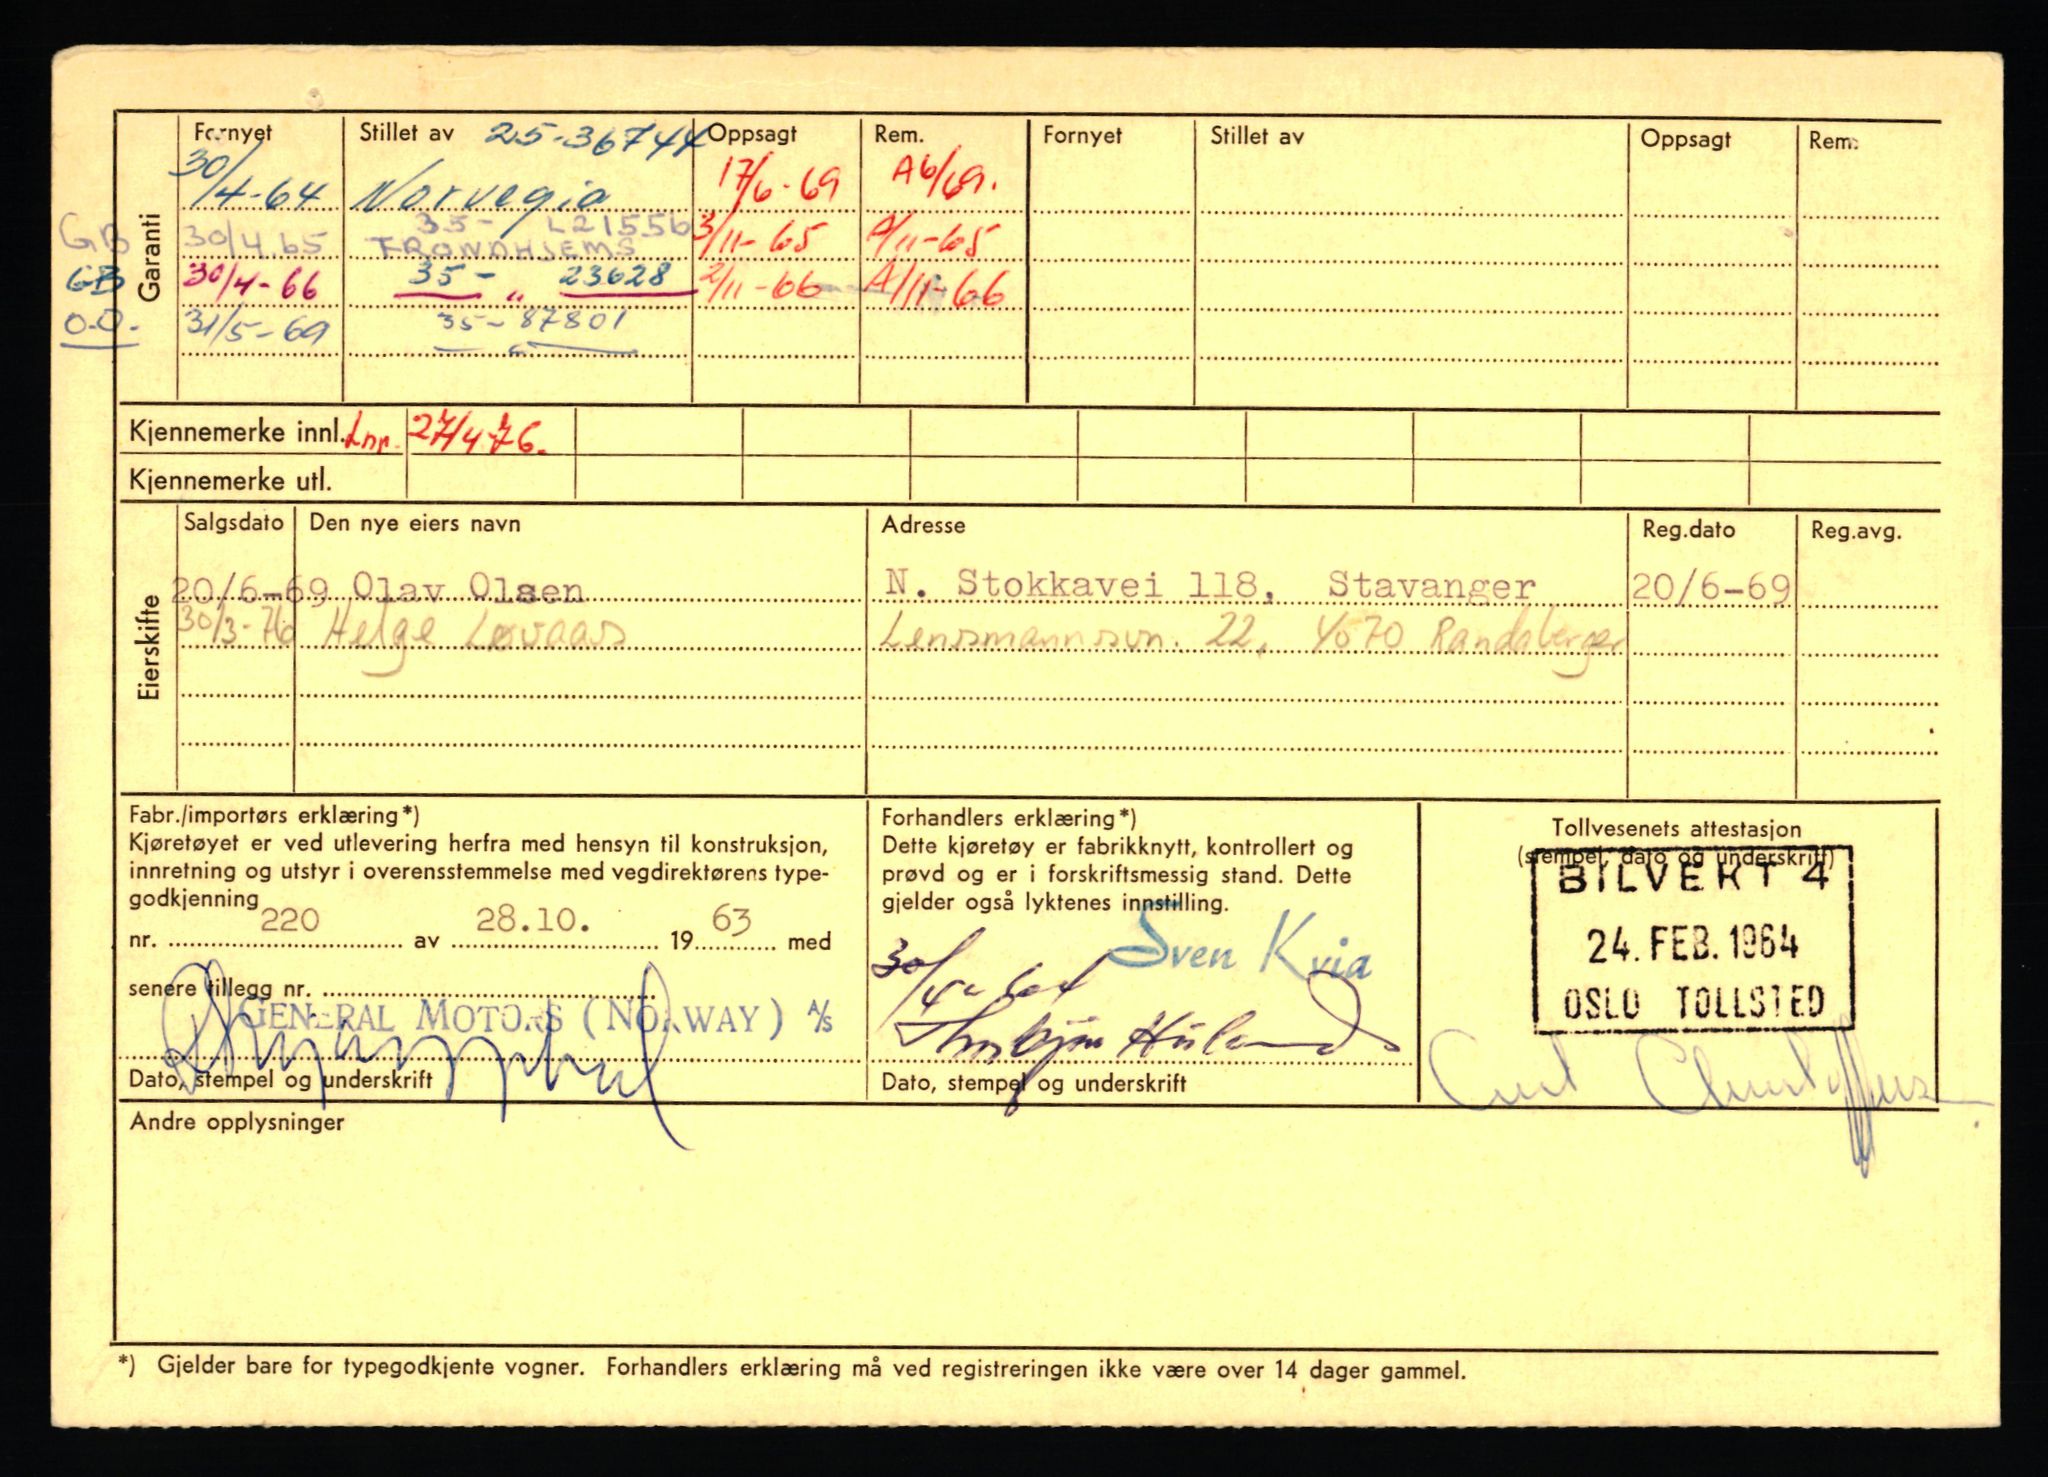 Garanti
Fornyet Stillet av 25-36744 Oppsagt Rem. Fornyet Stillet av Oppsagt Rem.
30/4-64 Norvegia 17/6-69 A6/69.
GB 30/4.65 35- L21556 TRONDHJEMS 3/11-65 A/11-65
GB 30/4-66 35- " 23628 2/11-66 A/11-66
O.O. 31/5-69 35-87801
Kjennemerke innl. Lnr. 27/4-76.
Kjennemerke utl.
Eierskifte
Salgsdato Den nye eiers navn Adresse Reg.dato Reg.avg.
20/6-69 Olav Olsen N. Stokkavei 118, Stavanger 20/6-69
30/3-76 Helge Løvaas Lensmannsvn. 22, 4070 Randaberg
Fabr./importørs erklæring*)
Kjøretøyet er ved utlevering herfra med hensyn til konstruksjon,
innretning og utstyr i overensstemmelse med vegdirektørens type-
godkjenning
nr. 220 av 28.10. 1963 med
senere tillegg nr.
GENERAL MOTORS (NORWAY) A/S
Dato, stempel og underskrift
Forhandlers erklæring*)
Dette kjøretøy er fabrikknytt, kontrollert og
prøvd og er i forskriftsmessig stand. Dette
gjelder også lyktenes innstilling.
Sven Kvia
30/4-64
Dato, stempel og underskrift
Tollvesenets attestasjon
(stempel, dato og underskrift)
BILVEKT 4
24. FEB. 1964
OSLO TOLLSTED
Andre opplysninger
*) Gjelder bare for typegodkjente vogner. Forhandlers erklæring må ved registreringen ikke være over 14 dager gammel.